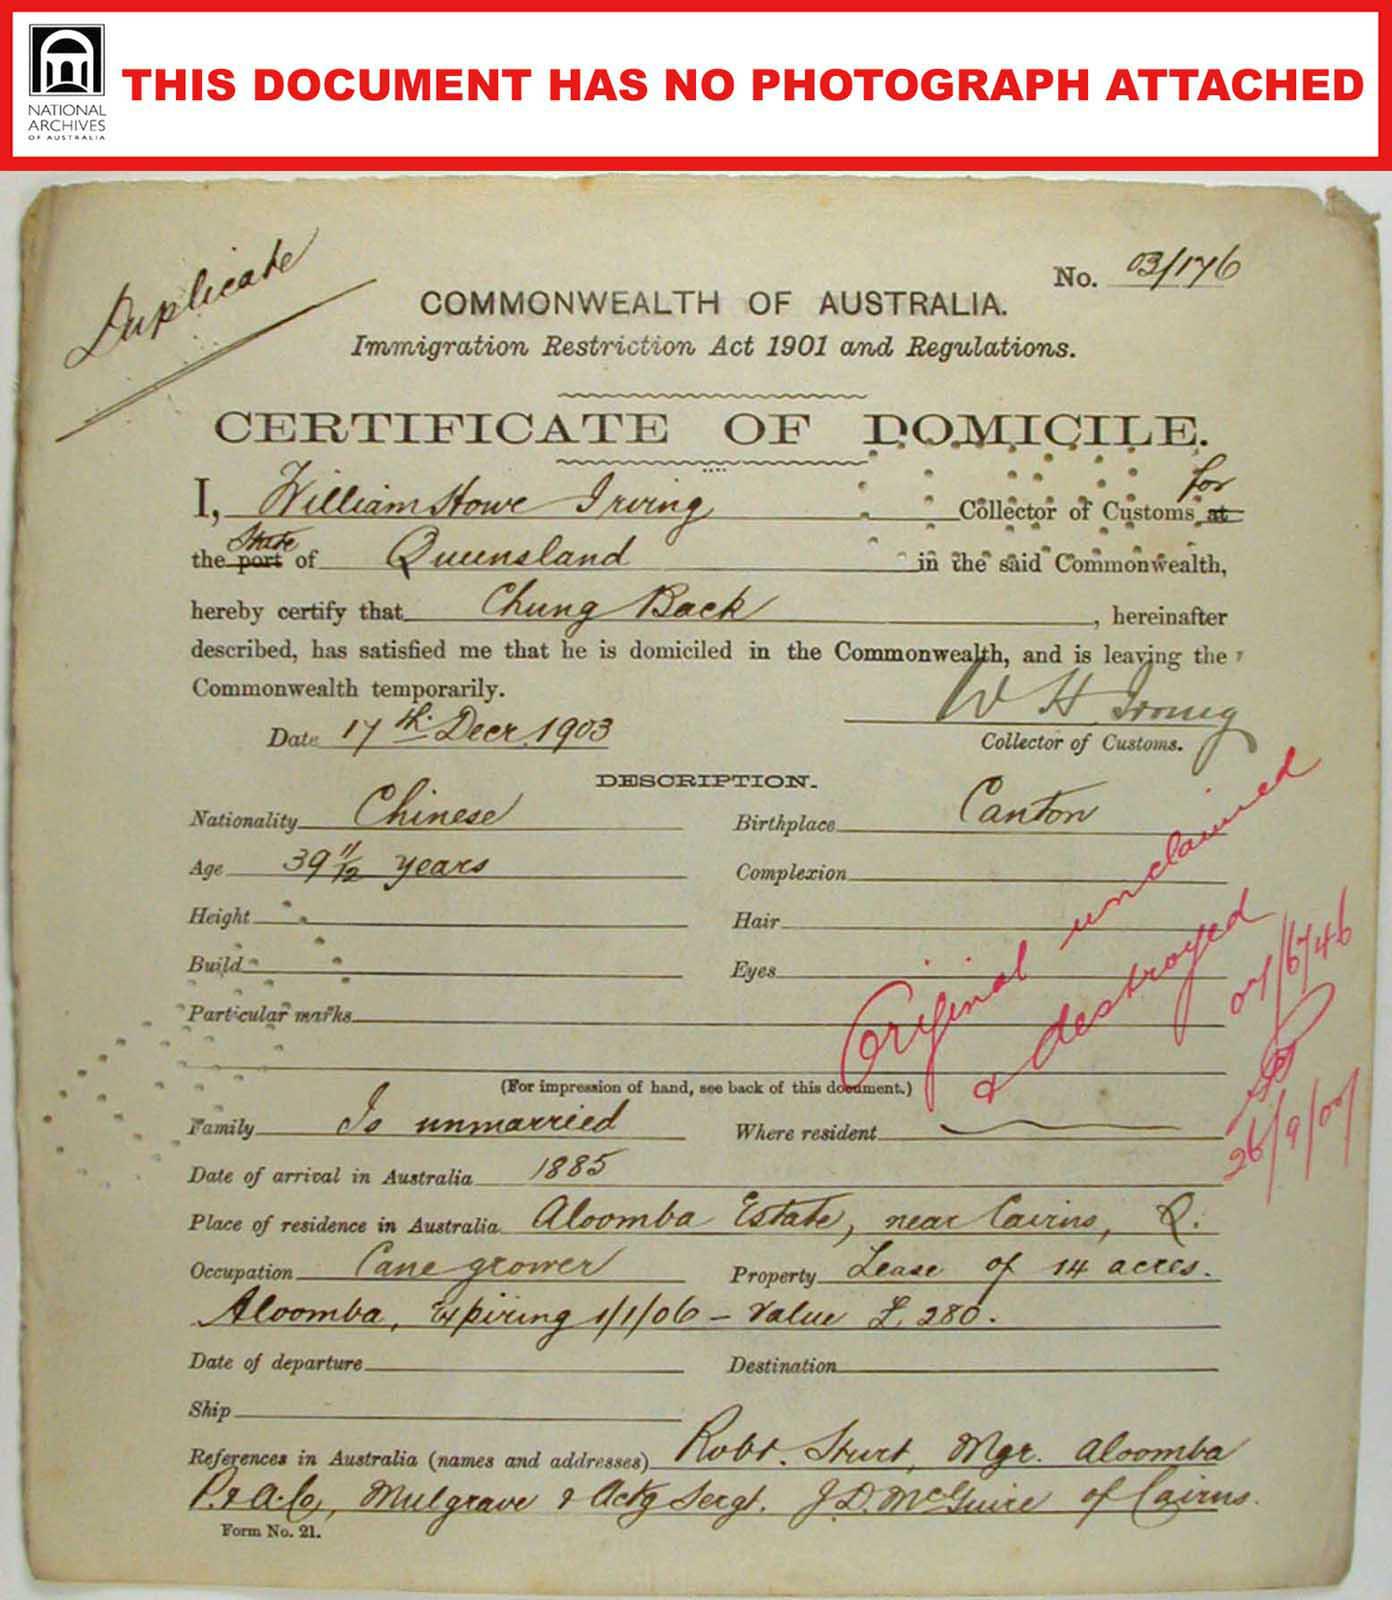 NATIONAL
ARCHIVES
OF AUSTRALIA
THIS DOCUMENT HAS NO PHOTOGRAPH ATTACHED
Duplicate
No. 03/176
COMMONWEALTH OF AUSTRALIA.
Immigration Restriction Act 1901 and Regulations.
CERTIFICATE OF DOMICILE.
I, William Howe Irving Collector of Customs at for
the port State of Queensland in the said Commonwealth,
hereby certify that Chung Back, hereinafter
described, has satisfied me that he is domiciled in the Commonwealth, and is leaving the
Commonwealth temporarily.
W H Irving
Date 17th Decr 1903
Collector of Customs.
DESCRIPTION.
Nationality Chinese Birthplace Canton
Age 39 11/12 years Complexion
Height Hair
Build Eyes
Particular marks
Original unclaimed
& destroyed
07/6746
26/9/07
(For impression of hand, see back of this document.)
Family Is unmarried Where resident
Date of arrival in Australia 1885
Place of residence in Australia Aloomba Estate, near Cairns, Q.
Occupation Cane grower Property Lease of 14 acres.
Aloomba, Expiring 1/1/06 – Value £ 280.
Date of departure Destination
Ship
References in Australia (names and addresses) Robt. Sturt, Mgr. Aloomba
P. & A. Co, Mulgrave & Actg Sergt. J D. McGuire of Cairns.
Form No. 21.